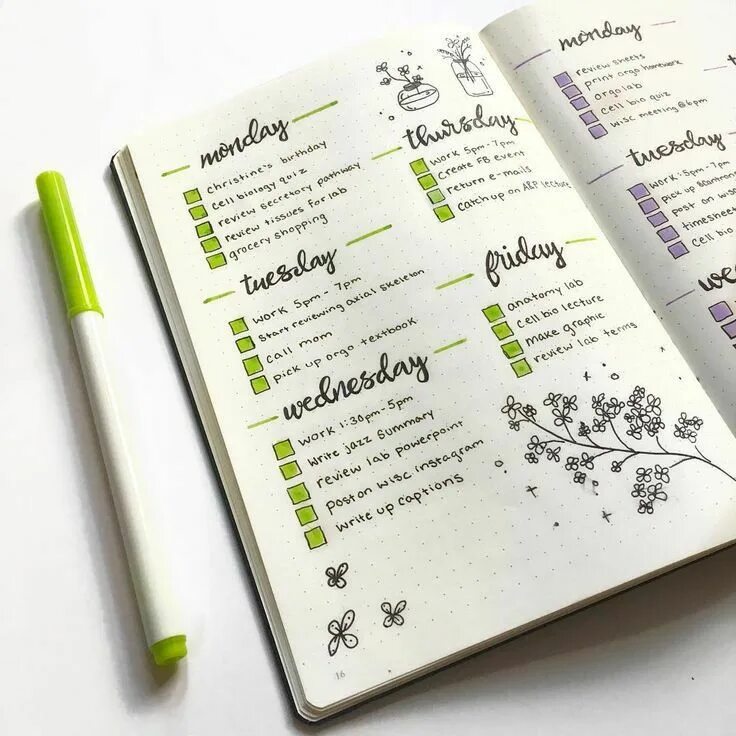 monday
christine's birthday
cell biology quiz
review secretory pathway
review tissues for lab
grocery shopping
tuesday
work 5pm - 7pm
start reviewing axial skeleton
call mom
pick up orgo textbook
wednesday
work 1:30pm - 5pm
write jazz summary
review lab powerpoint
post on wisc instagram
write up captions
16
thursday
work 5pm - 7pm
create FB event
return e-mails
catch up on A&P lecture
friday
anatomy lab
cell bio lecture
make graphic
review lab terms
monday
review sheets
print orgo homework
orgo lab
cell bio quiz
wisc meeting @ 6pm
tuesday
work - 5pm - 7pm
pick up
post on wisc
timesheet
cell bio
we